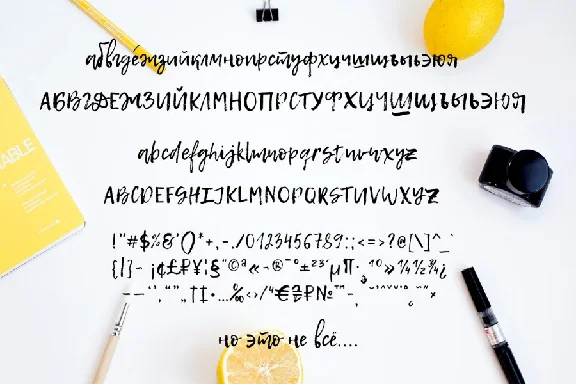 абвгдеёжзийклмнопрстуфхцчшщъыьэюя
АБВГДЕЖЗИЙКЛМНОПРСТУФХЦЧШЩЪЫЬЭЮЯ
abcdefghijklmnopqrstuvwxyz
ABCDEFGHIJKLMNOPQRSTUVWXYZ
!"#$%&'()*+,-./0123456789:;<=>?@[\]^_`
{|}~ ¡¢£₽¥¦§¨©ª«¬®¯°±²³´µ¶·¸¹º»¼½¾¿
–—‘’‚“”„†‡•…‰‹›⁄€₽№™
но это не всё....